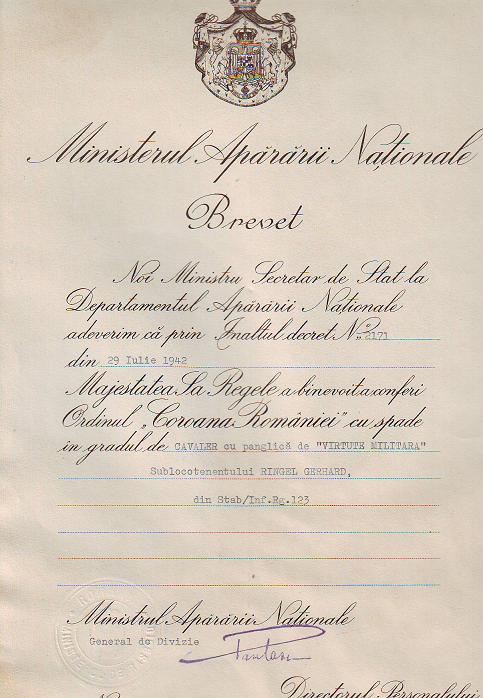 Ministerul Apărării Naționale
Brevet
Noi Ministru Secretar de Stat la
Departamentul Apărării Naționale
adeverim că prin Înaltul decret No. 2171
din 29 Iulie 1942
Majestatea Sa Regele a binevoit a conferi
Ordinul „Coroana României" cu spade
în gradul de CAVALER cu panglică de "VIRTUTE MILITARA"
Sublocotenentului RINGEL GERHARD,
din Stab/Inf.Rg.123
Ministrul Apărării Naționale
General de Divizie
Directorul Personalului